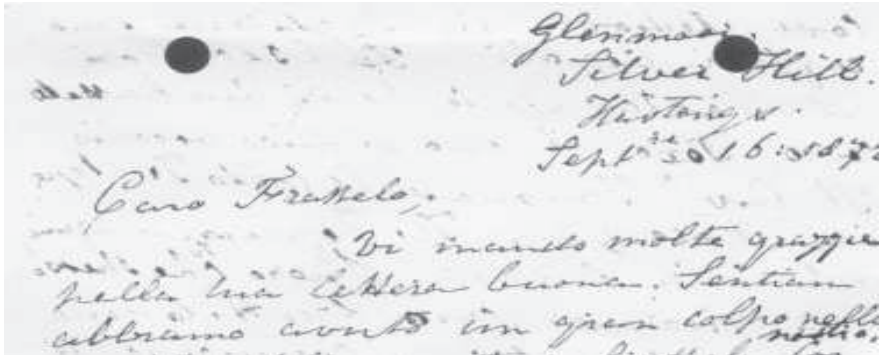 Glenmoor.
Silver Hill.
Hastings.
Sept 16: 187
Caro Frattelo,
Vi mando molte grazzie
pella tua lettera buona. Sentiam
abbiamo avuto un gran colpo nella
nostra